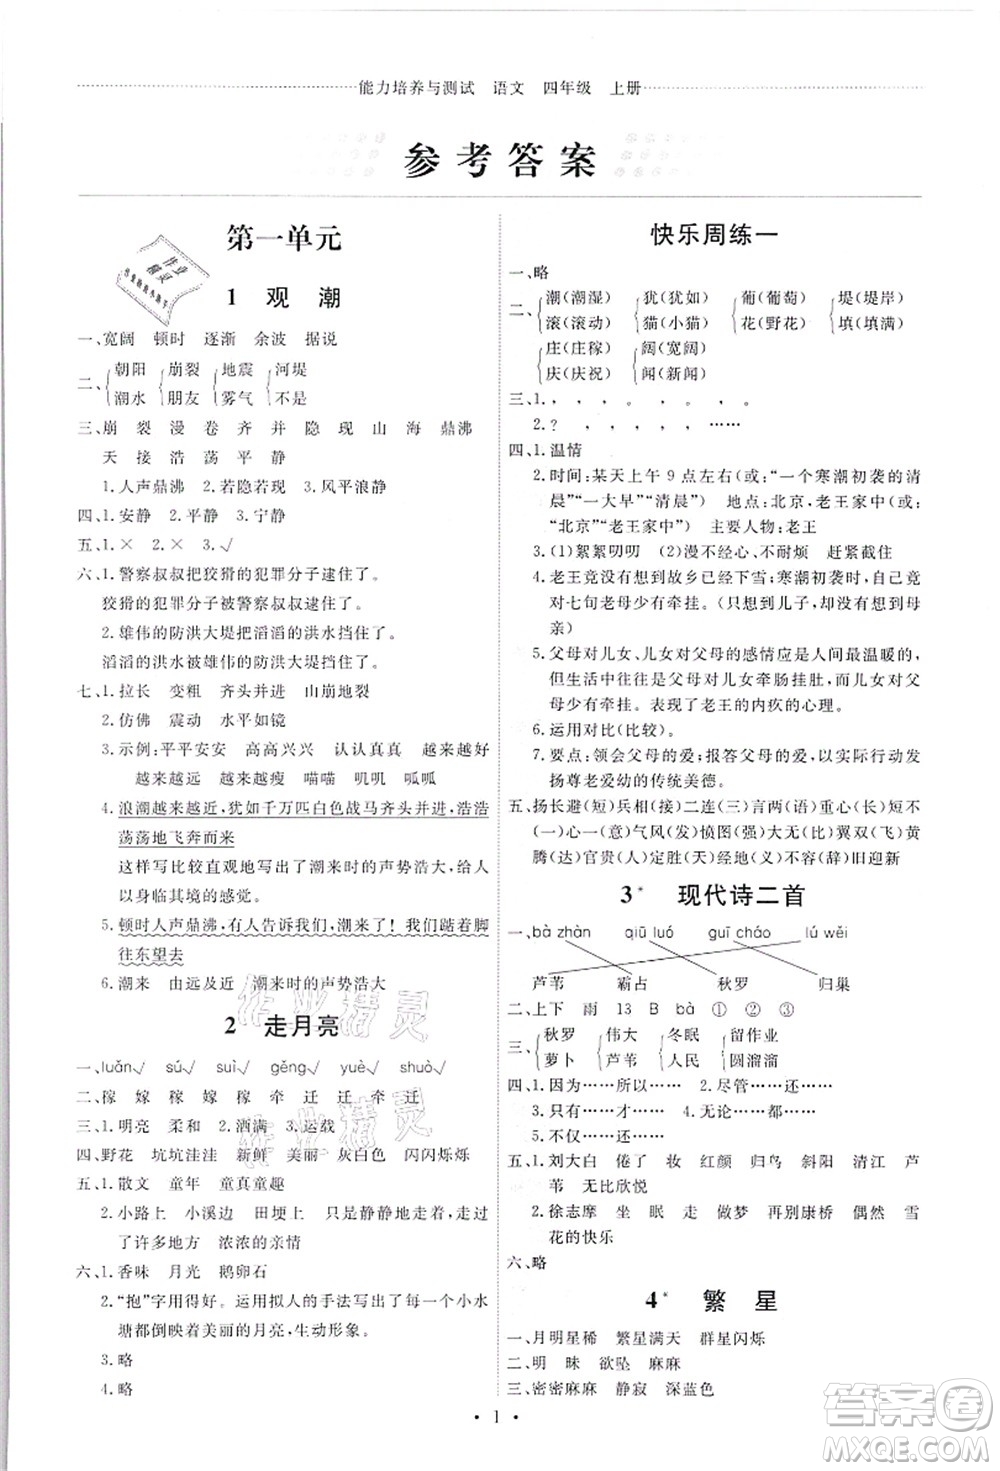 能力培养与测试 语文 四年级 上册
参考答案
第一单元
1 观 潮
一、宽阔 顿时 逐渐 余波 据说
二、{朝阳 {崩裂 {地震 {河堤
潮水 朋友 雾气 不是
三、崩 裂 漫 卷 齐 并 隐 现 山 海 鼎沸
天 接 浩 荡 平 静
1.人声鼎沸 2.若隐若现 3.风平浪静
四、1.安静 2.平静 3.宁静
五、1.× 2.× 3.√
六、1.警察叔叔把狡猾的犯罪分子逮住了。
狡猾的犯罪分子被警察叔叔逮住了。
2.雄伟的防洪大堤把滔滔的洪水挡住了。
滔滔的洪水被雄伟的防洪大堤挡住了。
七、1.拉长 变粗 齐头并进 山崩地裂
2.仿佛 震动 水平如镜
3.示例:平平安安 高高兴兴 认认真真 越来越好
越来越远 越来越瘦 喵喵 叽叽 呱呱
4.浪潮越来越近,犹如千万匹白色战马齐头并进,浩浩
荡荡地飞奔而来
这样写比较直观地写出了潮来时的声势浩大,给人
以身临其境的感觉。
5.顿时人声鼎沸,有人告诉我们,潮来了!我们踮着脚
往东望去
6.潮来 由远及近 潮来时的声势浩大
2 走月亮
一、luǎn√ sú√ gēng√ yuè√ shuò√
二、稼 嫁 稼 嫁 稼 牵 迁 牵 迁
三、1.明亮 柔和 2.洒满 3.运载
四、野花 坑坑洼洼 新鲜 美丽 灰白色 闪闪烁烁
五、1.散文 童年 童真童趣
2.小路上 小溪边 田埂上 只是静静地走着 走过
了许多地方 浓浓的亲情
六、1.香味 月光 鹅卵石
2.“抱”字用得好。运用拟人的手法写出了每个小水
塘都倒映着美丽的月亮,生动形象。
3.略
4.略
快乐周练一
一、略
二、{潮(潮湿) {犹(犹如) {葡(葡萄) {堤(堤岸)
滚(滚动) 猫(小猫) 花(野花) 填(填满)
{庄(庄稼) {阔(宽阔)
庆(庆祝) 闻(新闻)
三、1. , , 。 , 。
2.? , , , , ……
四、1.温情
2.时间:某天上午9点左右(或:“一个寒潮初袭的清
晨”“一大早”“清晨”) 地点:北京,老王家中(或:
“北京”“老王家中”) 主要人物:老王
3.(1)絮絮叨叨 (2)漫不经心、不耐烦 赶紧截住
4.老王怎么也没有想到故乡已经下雪;寒潮初袭时,他
对七旬老母少有牵挂。(只想到儿子,没有想到母
亲)
5.父母对儿女、儿女对父母的感情应是人间最温暖的,
但生活中往往是父母对儿女牵肠挂肚,而儿女对父
母多有牵挂。表现了老王的内疚的心理。
6.运用对比(比较)。
7.要点:领会父母的爱;报答父母的爱,以实际行动发
扬尊老爱幼的传统美德。
五、扬长避(短)兵相(接)二连(三)言两(语)重心(长)短不
(一)心一(意)气风(发)愤图(强)大无(比)翼双(飞)黄
腾(达)官贵(人)定胜(天)经地(义)不容(辞)旧迎新
3* 现代诗二首
一、bà zhàn qiū luó guī cháo lú wěi
芦苇 霸占 秋罗 归巢
二、上下 雨 13 B bà ① ② ③
三、{秋罗 {伟大 {冬眠 {留作业
萝卜 芦苇 人民 圆溜溜
四、1.因为……所以…… 2.尽管……还……
3.只有……才…… 4.无论……都……
5.不仅……还……
五、1.刘大白 倦了 妆 红颜 归鸟 斜阳 清江 芦
苇 无比欣悦
2.徐志摩 坐 眠 走 做梦 再别康桥 偶然 雪
花的快乐
六、略
4* 繁 星
一、月明星稀 繁星满天 群星闪烁
二、明 昧 欲坠 麻麻
三、密密麻麻 静寂 深蓝色
• 1 •
作业精灵
作业精灵
作业精灵
答案圈
MXQE.COM